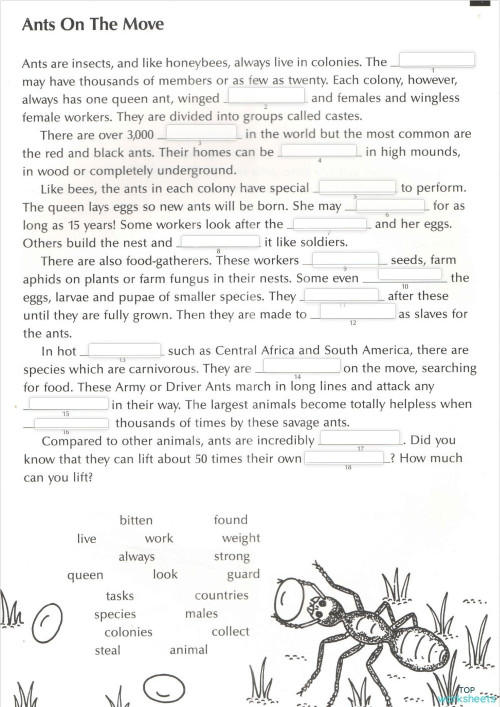 Ants On The Move
Ants are insects, and like honeybees, always live in colonies. The
1
may have thousands of members or as few as twenty. Each colony, however,
always has one queen ant, winged and females and wingless
2
female workers. They are divided into groups called castes.
There are over 3,000 in the world but the most common are
3
the red and black ants. Their homes can be in high mounds,
4
in wood or completely underground.
Like bees, the ants in each colony have special to perform.
5
The queen lays eggs so new ants will be born. She may for as
6
long as 15 years! Some workers look after the and her eggs.
7
Others build the nest and it like soldiers.
8
There are also food-gatherers. These workers seeds, farm
9
aphids on plants or farm fungus in their nests. Some even the
10
eggs, larvae and pupae of smaller species. They after these
11
until they are fully grown. Then they are made to as slaves for
12
the ants.
In hot such as Central Africa and South America, there are
13
species which are carnivorous. They are on the move, searching
14
for food. These Army or Driver Ants march in long lines and attack any
in their way. The largest animals become totally helpless when
15
thousands of times by these savage ants.
16
Compared to other animals, ants are incredibly . Did you
17
know that they can lift about 50 times their own ? How much
18
can you lift?
bitten found
live work weight
always strong
queen look guard
tasks countries
species males
colonies collect
steal animal
TOP
worksheets